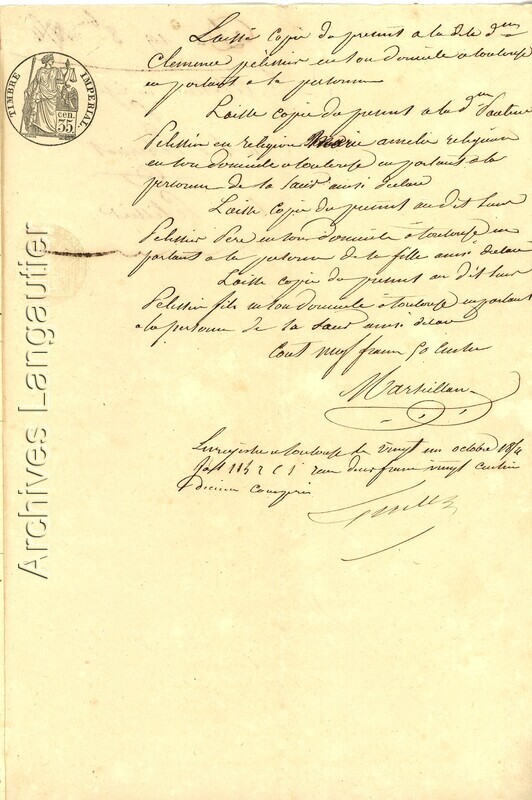 TIMBRE IMPERIAL
cen. 35
Laissé copie du present a la dite dme
Clemence pelissier en son domicile a toulouse
en parlant a la personne
Laissé copie du present a la dme
Pelissier en religion Marie amelie religieuse
en son domicile a toulouse en parlant a la
personne de la Sœur ainsi declaré
Laissé copie du present au dit Sieur
Pelissier Pere en son domicile a toulouse en
parlant a la personne de la fille ainsi declaré
Laissé copie du present au dit Sieur
Pelissier fils en son domicile a toulouse en parlant
a la personne de la Sœur ainsi declaré
Cout neuf francs 50 centes
Marseillan
Enregistré a toulouse le vingt un octobre
fol 114 2 C 1 reçu deux francs vingt centimes
decime compris
Archives Langautier